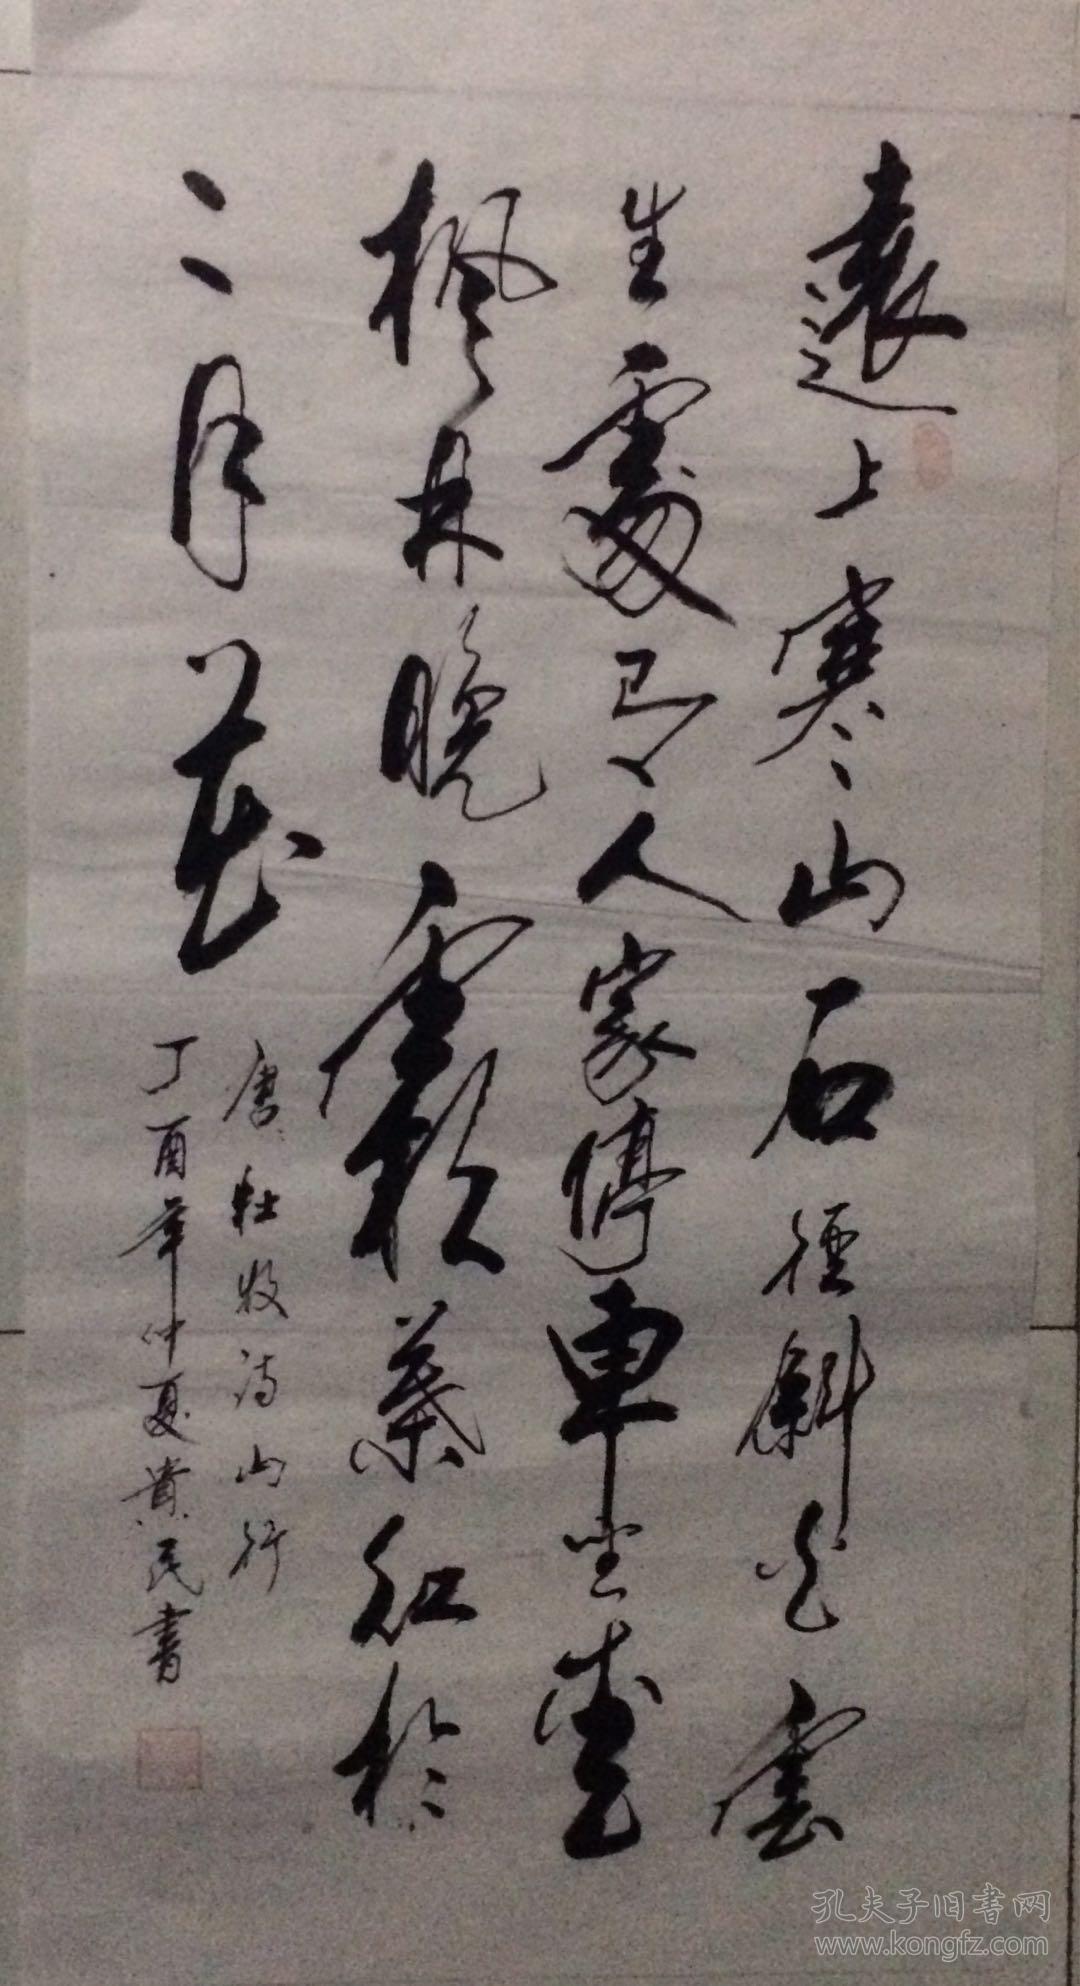 遠上寒山石徑斜白雲
生處有人家停車坐愛
楓林晚霜葉紅於
二月花
唐杜牧詩山行
丁酉年仲夏貴民書
孔夫子旧书网
www.kongfz.com